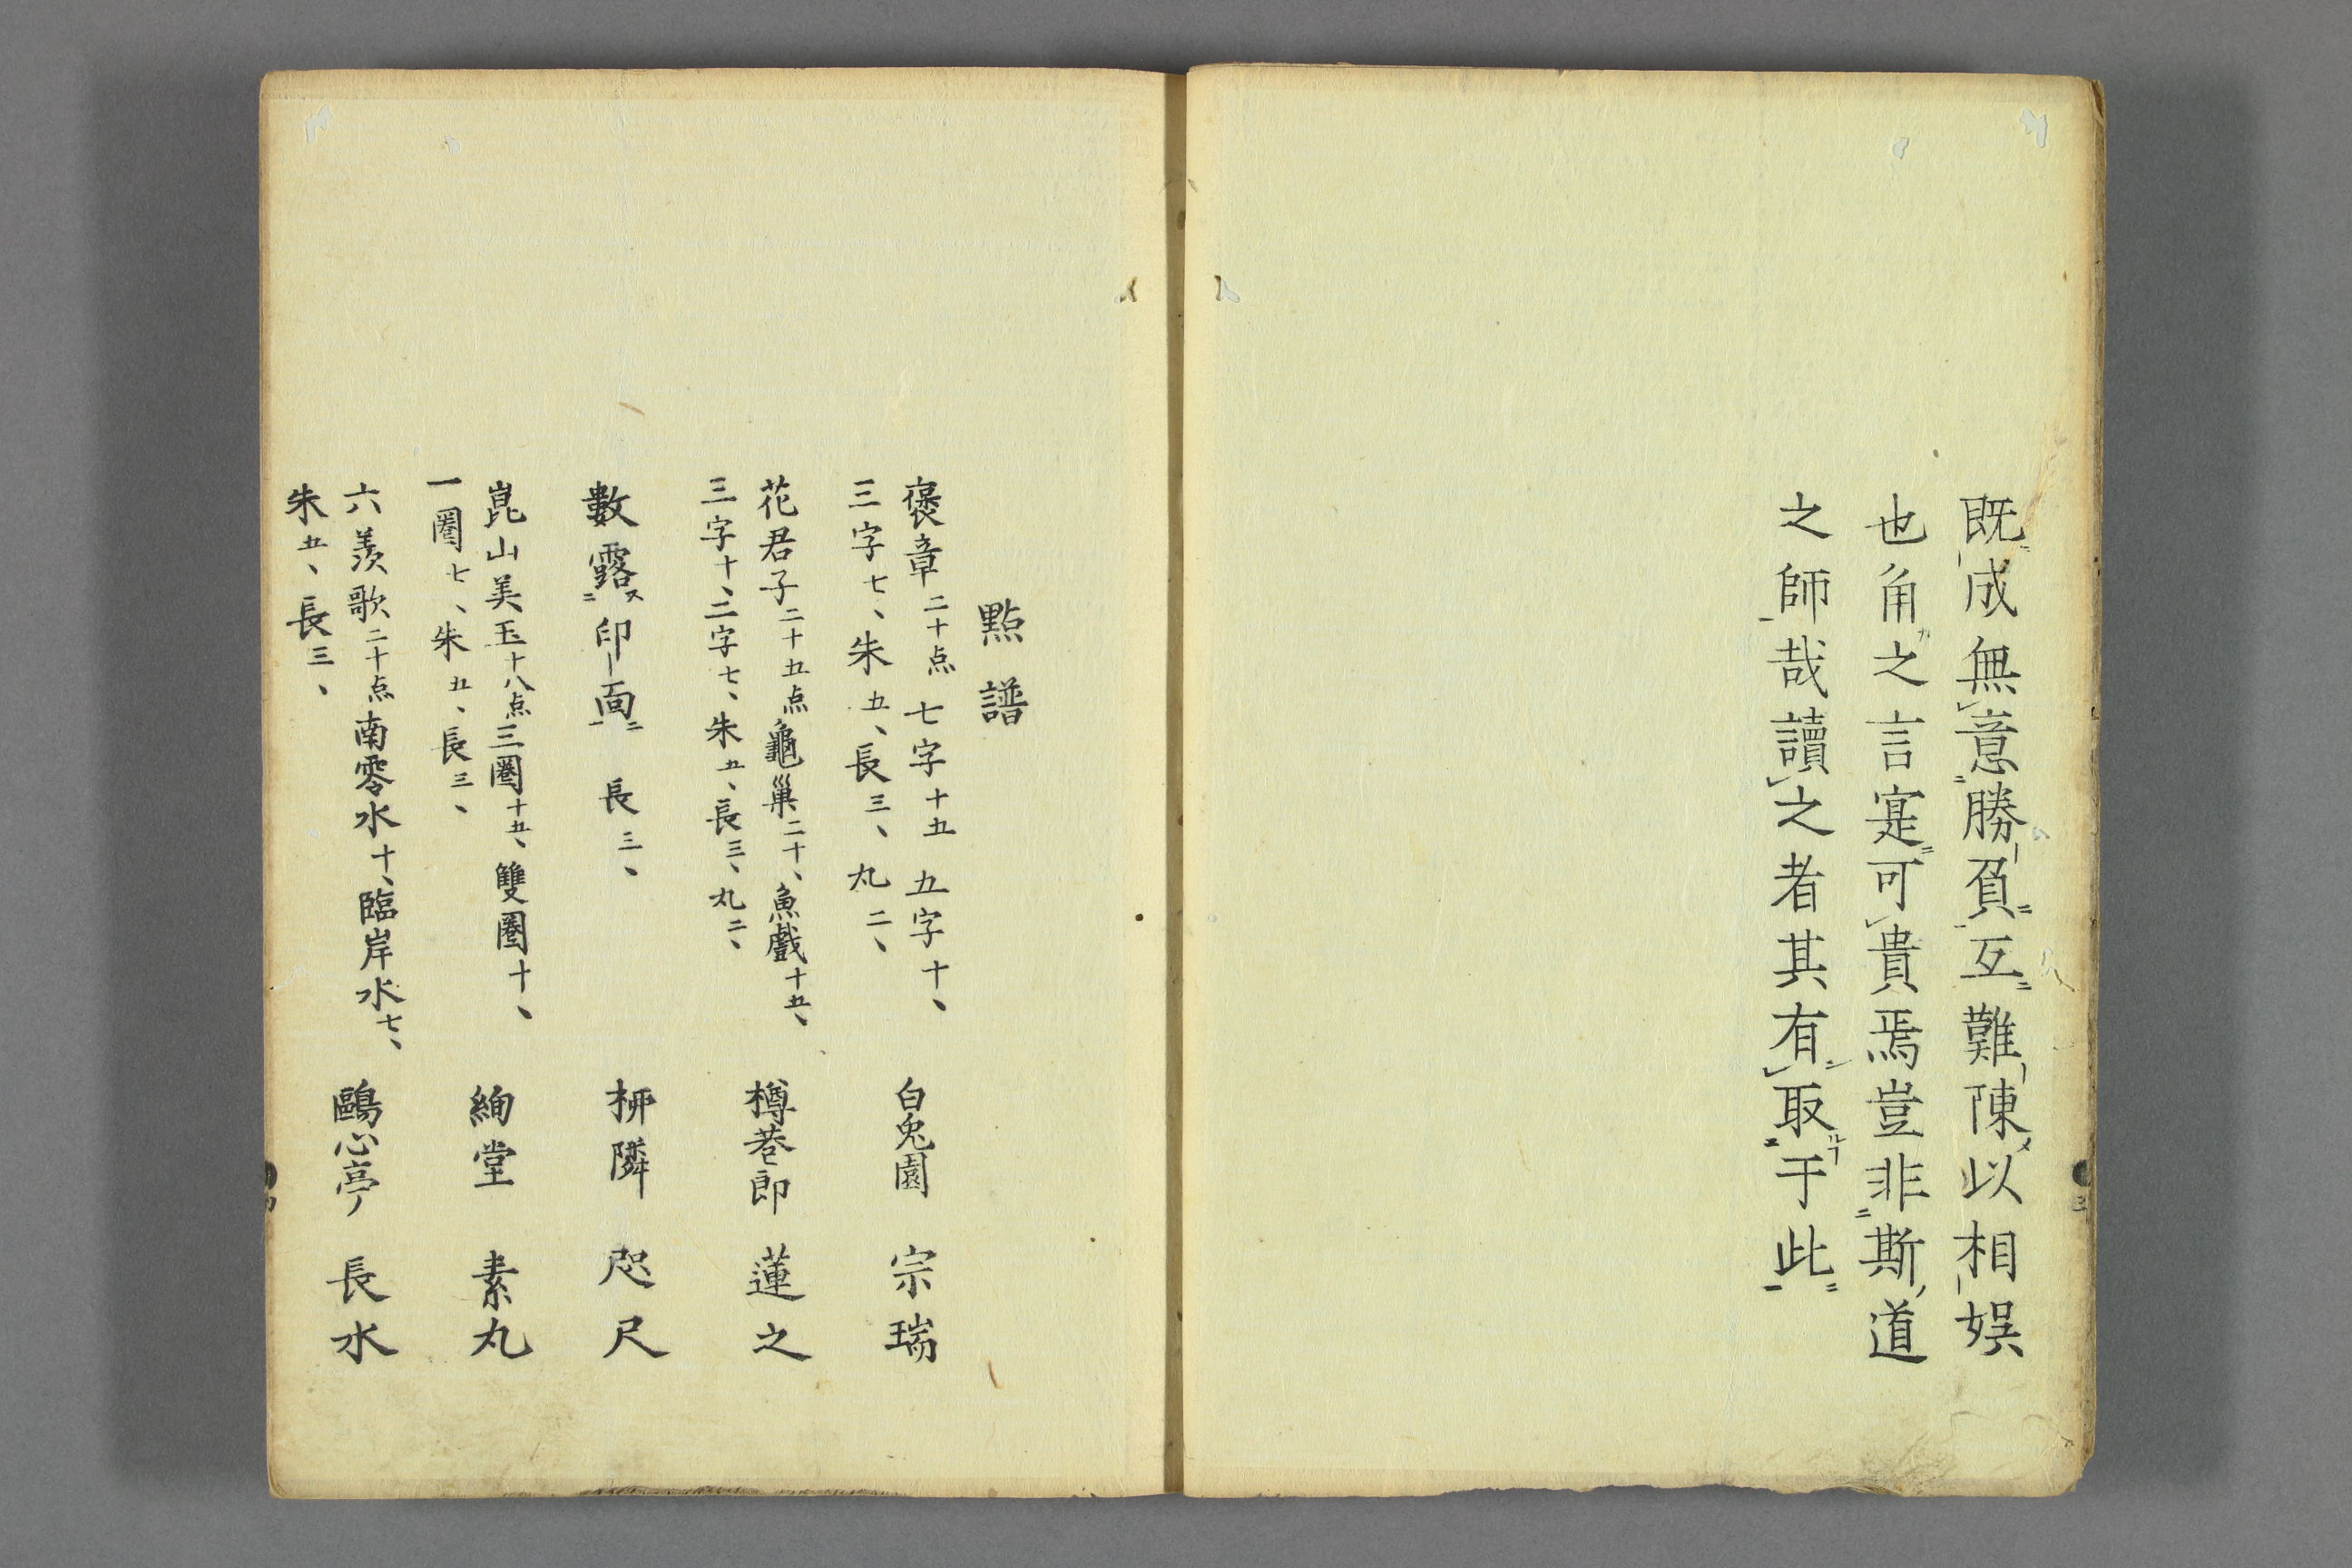 既成無意勝負互難陳以相娯
也角之言寔可貴焉豈非斯道
之師哉讀之者其有取于此
點譜
褒章二十点 七字十五 五字十、 白兔園 宗瑞
三字七、朱五、長三、丸二、
花君子二十五点 龜巢二十、魚戲十五、 樽巷郎 蓮之
三字十、二字七、朱五、長三、丸二、
數露印面 長三、 栁隣 咫尺
崑山美玉十八点 三圏十五、雙圏十、 絢堂 素丸
一圏七、朱五、長三、
六羨歌二十点 南零水十、臨岸水七、 鷗心亭 長水
朱五、長三、